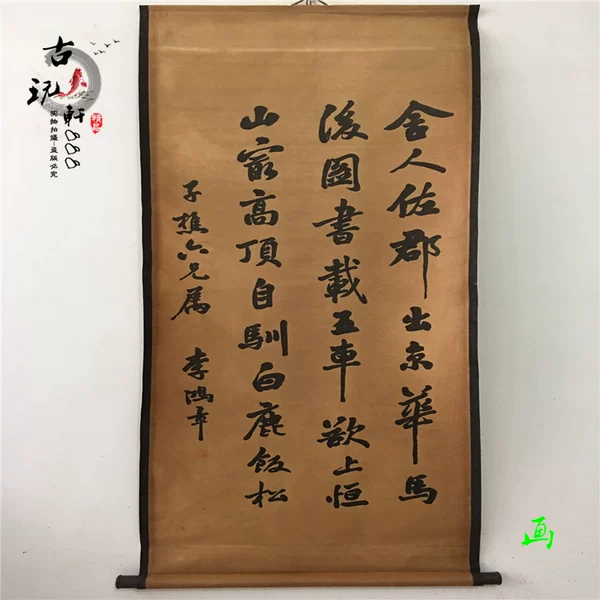 舍人佐郡出京華馬
後圖書載五車欲上恒
山最高頂自馴白鹿飯松
子樵六兄属 李鴻章
古玩軒888
实物拍摄-盗版必究
画